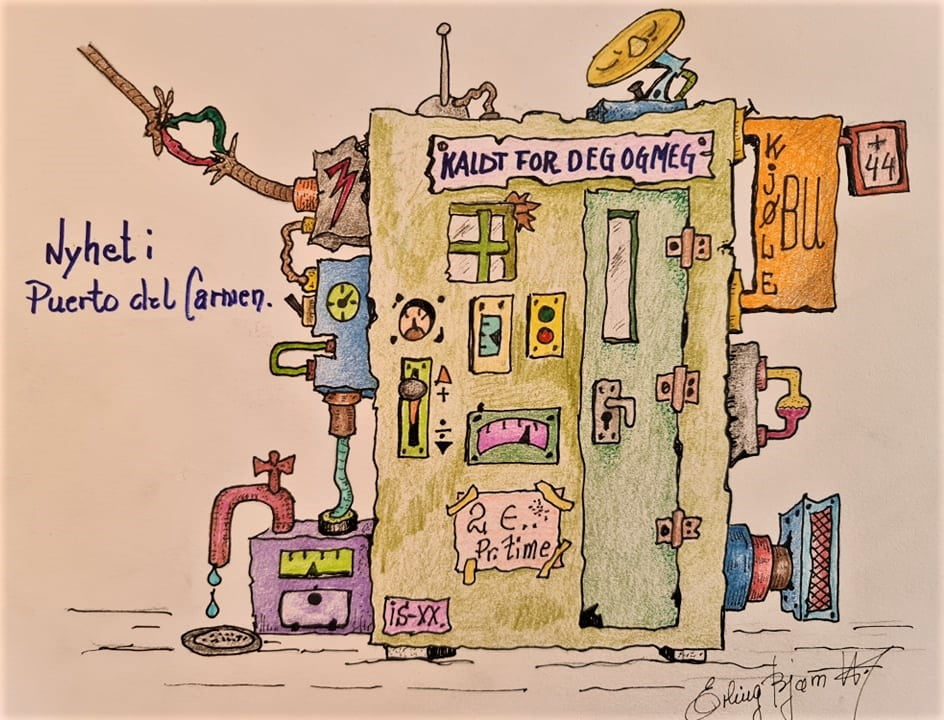 KALDT FOR DEG OG MEG
KJØLE
BU
+
44
Nyhet i
Puerto del Carmen.
+
÷
2 €...
Pr. time
iS-XX.
Erling Bjørn